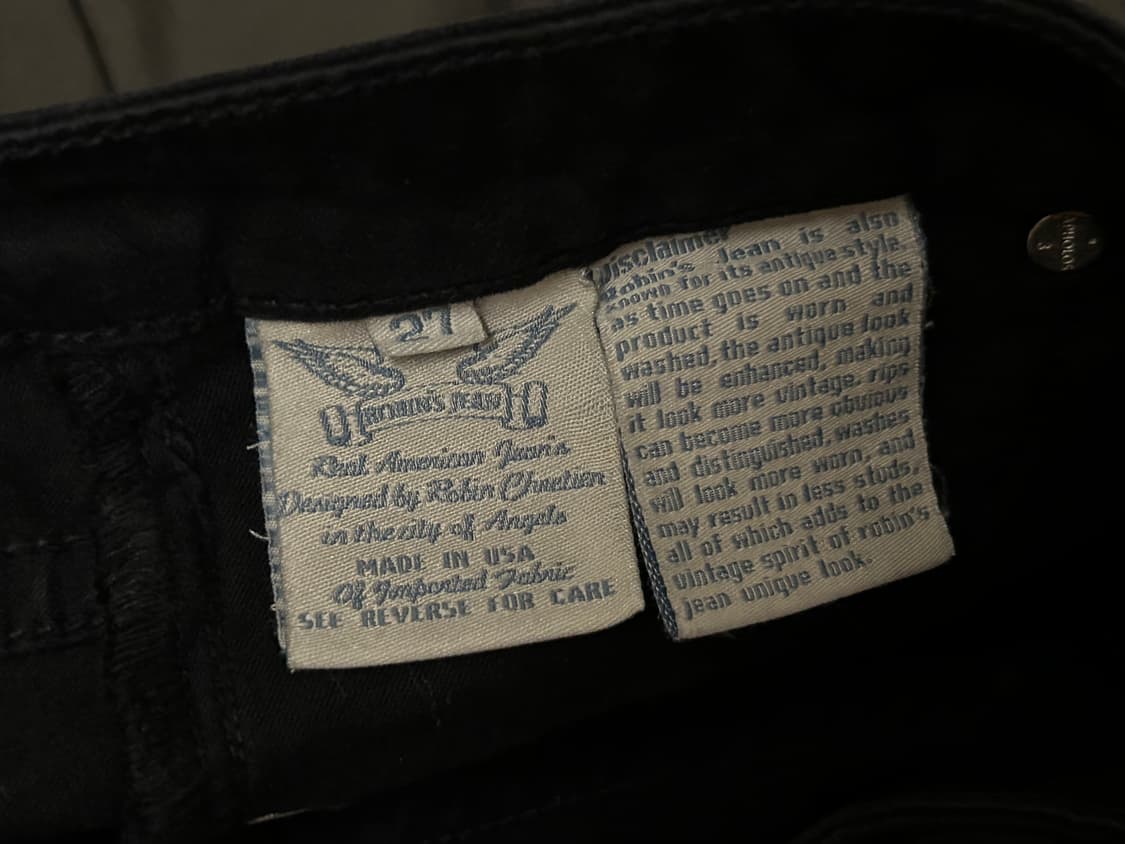 27
ROBIN'S JEAN
Real American Jean's
Designed by Robin Chretien
in the city of Angels
MADE IN USA
Of Imported Fabric
SEE REVERSE FOR CARE
Disclaimer
Robin's Jean is also
known for its antique style.
as time goes on and the
product is worn and
washed, the antique look
will be enhanced, making
it look more vintage. rips
can become more obvious
and distinguished. washes
will look more worn, and
may result in less studs,
all of which adds to the
vintage spirit of robin's
jean unique look.